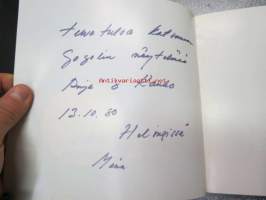 tervetuloa katsomaan
Gogolin näytelmä
Anja & Kauko
13.10.80
Helsingissä
Antikvariaatti.net